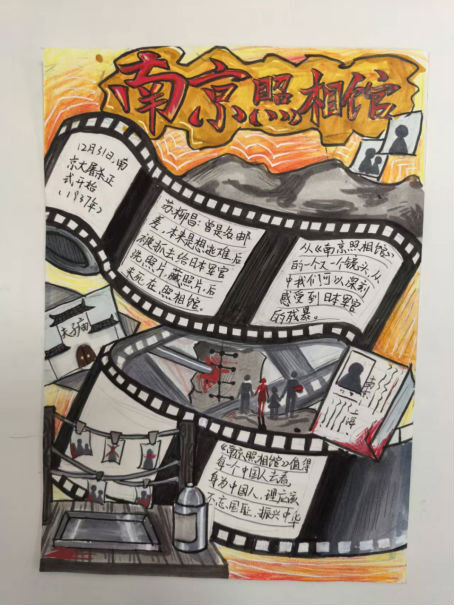 南京照相馆
12月31日,南
京大屠杀正
式开始
(1937年)
苏柳昌:曾是名邮
差,本来是想逃难后
被抓去给日本军官
洗照片,藏照片后
来死在照相馆。
从《南京照相馆》
的一个又一个镜头,从
中我们可以深刻
感受到日本军官
的残暴。
夫子庙
南京
上海
《南京照相馆》值得
每一个中国人去看,
身为中国人,理应该
不忘国耻,振兴中华